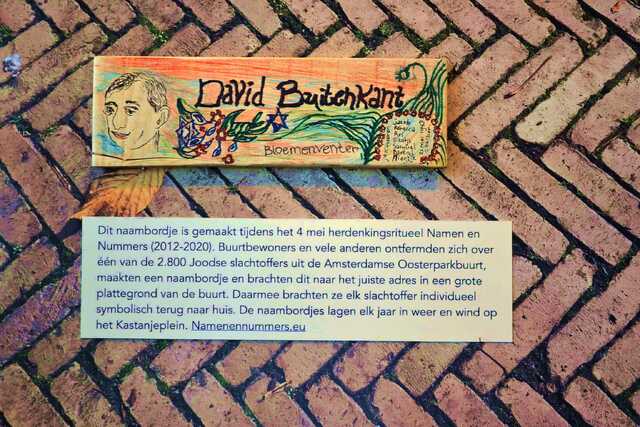 David Buitenkant
Bloemenventer
Dit naambordje is gemaakt tijdens het 4 mei herdenkingsritueel Namen en
Nummers (2012-2020). Buurtbewoners en vele anderen ontfermden zich over
één van de 2.800 Joodse slachtoffers uit de Amsterdamse Oosterparkbuurt,
maakten een naambordje en brachten dit naar het juiste adres in een grote
plattegrond van de buurt. Daarmee brachten ze elk slachtoffer individueel
symbolisch terug naar huis. De naambordjes lagen elk jaar in weer en wind op
het Kastanjeplein. Namenennummers.eu